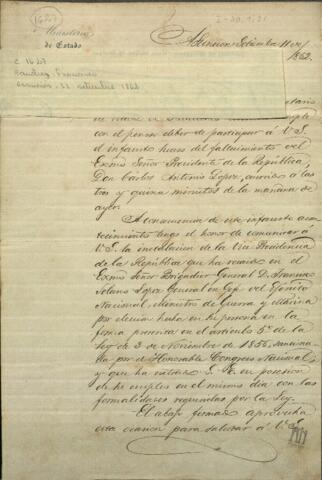 Ministerio
de Estado
Asuncion, Setiembre 11 de
1862.
con el penoso deber de participar á V.E.
el infausto suceso del fallecimiento del
Exmo Señor Presidente de la República,
Don Carlos Antonio Lopez, ocurrido a las
tres y quince minutos de la mañana de
ayer.
A consecuencia de ese infausto acon-
tecimiento tengo el honor de comunicar á
V.E. la instalacion de la Vice Presidencia
de la República que ha recaido en el
Exmo Señor Brigadier General D. Francisco
Solano Lopez General en Gefe del Ejército
Nacional, Ministro de Guerra y Marina
por eleccion hecha en su persona en la
forma prevenida en el articulo 5º de la
Ley de 3 de Noviembre de 1856, sanciona-
da por el Honorable Congreso Nacional,
y que ha entrado S.E. en posesion
de su empleo en el mismo dia con las
formalidades requeridas por la Ley.
El abajo firmado aprovecha
esta ocasion para saludar á V.E.